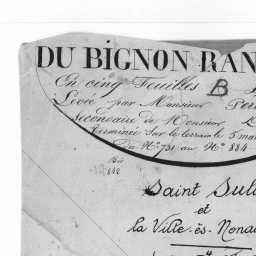 DU BIGNON RAN
En cinq Feuilles B
Levée par Monsieur
Secondaire de Monsieur
Terminée sur le terrain le 5 ma
Du Nº 731 au Nº 884
Bis
Saint Sul
et
la Ville-ès-Nona